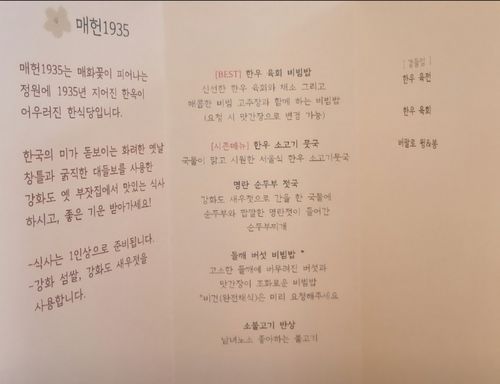 매헌1935
매헌1935는 매화꽃이 피어나는
정원에 1935년 지어진 한옥이
어우러진 한식당입니다.
한국의 미가 돋보이는 화려한 옛날
창틀과 굵직한 대들보를 사용한
강화도 옛 부잣집에서 맛있는 식사
하시고, 좋은 기운 받아가세요!
-식사는 1인상으로 준비됩니다.
-강화 섬쌀, 강화도 새우젓을
사용합니다.
[BEST] 한우 육회 비빔밥
신선한 한우 육회와 채소 그리고
매콤한 비빔 고추장과 함께 하는 비빔밥
(요청 시 맛간장으로 변경 가능)
[시즌메뉴] 한우 소고기 뭇국
국물이 맑고 시원한 서울식 한우 소고기뭇국
명란 순두부 젓국
강화도 새우젓으로 간을 한 국물에
순두부와 짭짤한 명란젓이 들어간
순두부찌개
들깨 버섯 비빔밥 *
고소한 들깨에 버무려진 버섯과
맛간장이 조화로운 비빔밥
*비건(완전채식)은 미리 요청해주세요
소불고기 반상
남녀노소 좋아하는 불고기
[곁들임]
한우 육전
한우 육회
버팔로 윙&봉